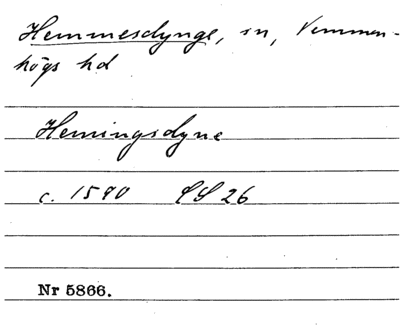 Hemmesdynge, sn, Vemmen-
högs hd
Hemingsdyne
c. 1570 LS 26
Nr 5866.